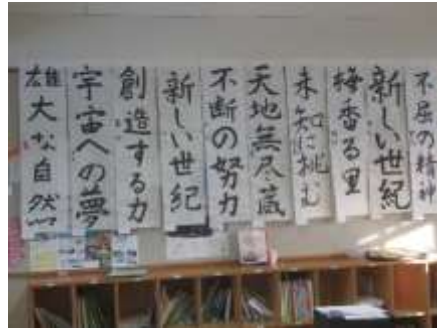 不屈の精神
新しい世紀
梅香る里
未知に挑む
天地無尽蔵
不断の努力
新しい世紀
創造する力
宇宙への夢
雄大な自然